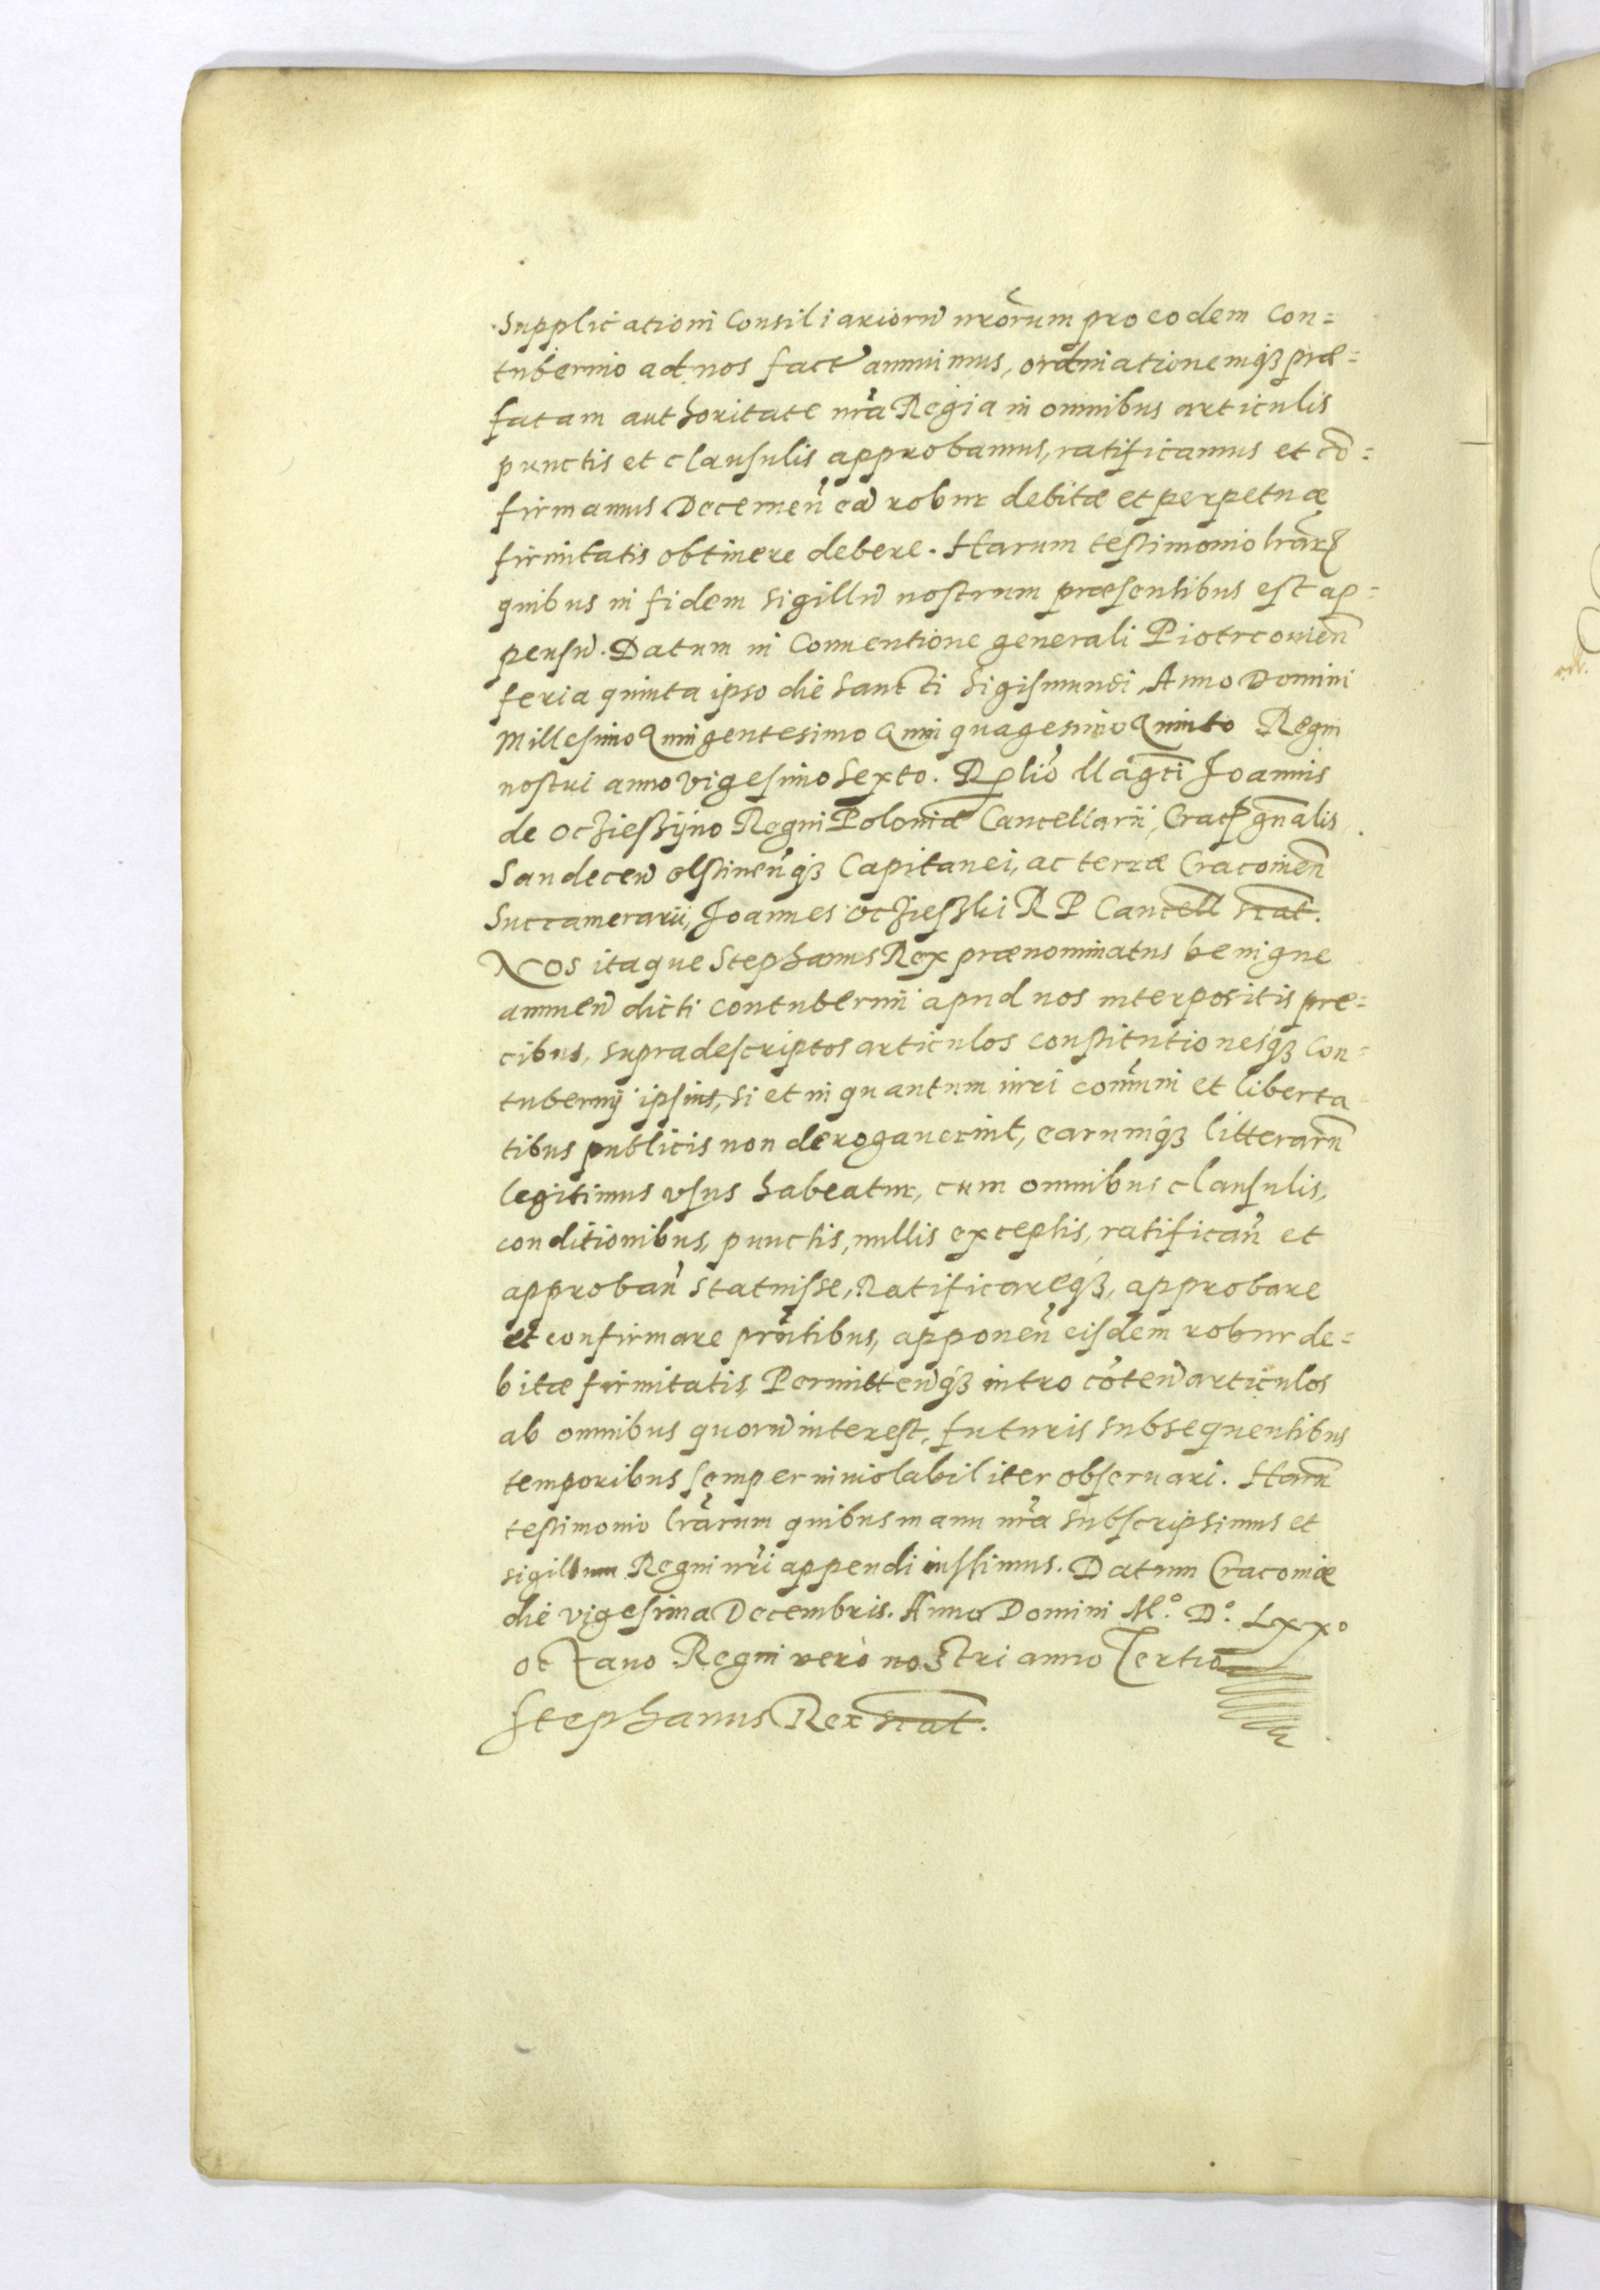 Supplicationi Consiliariorũ nrõrum pro eodem Con=
tubernio ad nos fact annuimus, ordinationemqꝫ præ=
fatam authoritate nrã Regia in omnibus articulis
punctis et clausulis approbamus, ratificamus et cõ=
firmamus Decernen̄ eã robur debitæ et perpetuæ
firmitatis obtinere debere. Harum testimonio lrãrꝫ
quibus in fidem sigillũ nostrum præsentibus est ap=
pensũ. Datum in Conuentione generali Piotrcouien̄
feria quinta ipso die Sancti Sigismundi, Anno Domini
Millesimo Quingentesimo Quinquagesimo Quinto Regni
nostri anno vigesimo sexto. Rₚ lió Magc̄i Joannis
de Ocziessÿno Regni Poloniæ Cancellarii, Crac̄ gn̄alis
Sandeceñ olstinen̄qꝫ Capitanei, ac terræ Cracouien̄
Succamerarii, Joannes Ocziesski R P Cancell̄ scat̄.
Nos itaque Stephanus Rex prænominatus benigne
annueñ dicti contubernii apud nos interpositis pre=
cibus, supradescriptos articulos constitutionesqꝫ Con=
tubernij ipsius, si et in quantum iuri com̄uni et liberta
tibus publicis non derogauerint, earumqꝫ litterarū
legitimus vsus habeatur, cum omnibus clausulis,
conditionibus, punctis, nullis exceptis, ratifican̄ et
approban̄ statuisse, Ratificareqꝫ, approbare
et confirmare prñtibus, apponen̄ eisdem robur de=
bitæ firmitatis Permitteñqꝫ intro cõteñ articulos
ab omnibus quorũ interest, futuris subsequentibus
temporibus semper inuiolabiliter obseruari. Harū
testimonio lrãrum quibus manu nrã subscripsimus et
sigillum Regni nrĩ appendi iussimus. Datum Cracouiæ
die vigesima Decembris. Anno Domini M.° D.° Lxx°
octauo Regni verò nostri anno Tertio
Stephanus Rex scat̄.